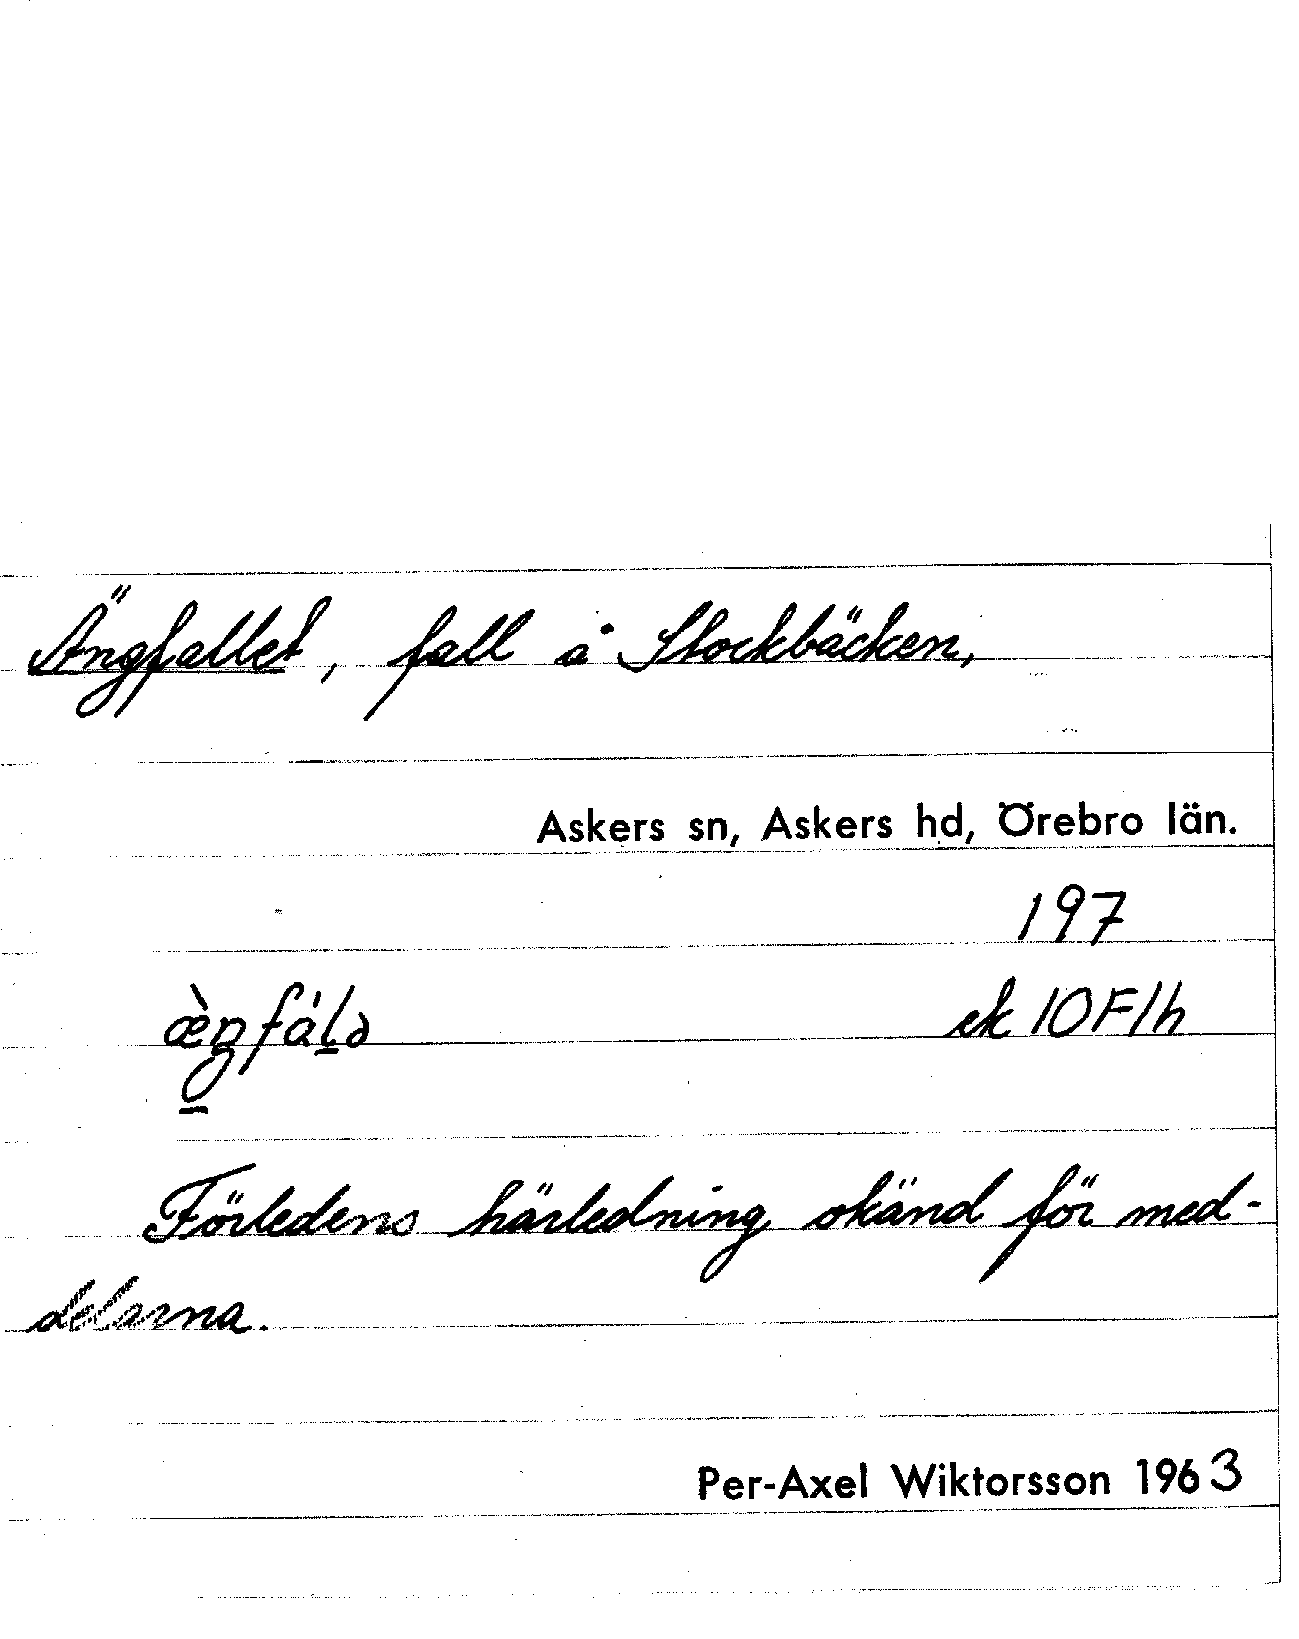 Ängfallet, fall å Stockbäcken,
Askers sn, Askers hd, Örebro län.
197
æ̀ŋfáḷə ek 10F1h
Förledens härledning okänd för med-
delarna.
Per-Axel Wiktorsson 1963